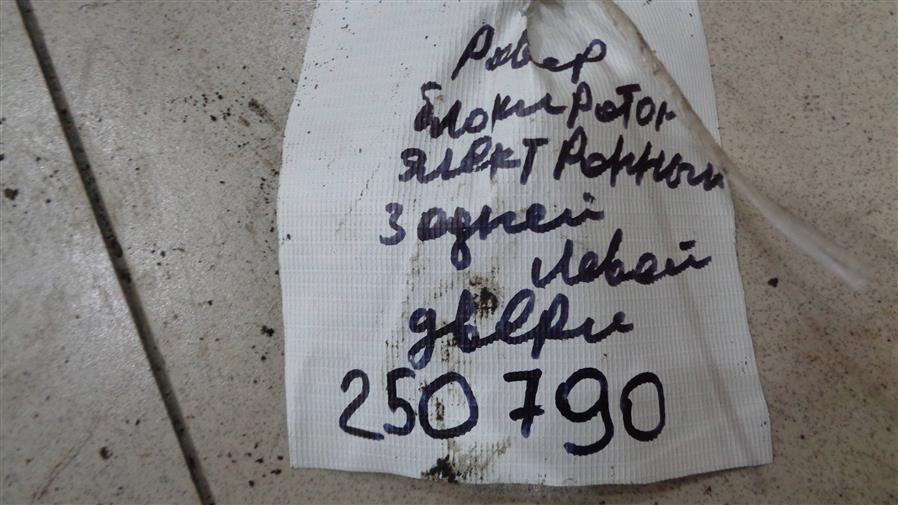 Ровер
блокиратор
электронный
задней
левой
двери
250 790